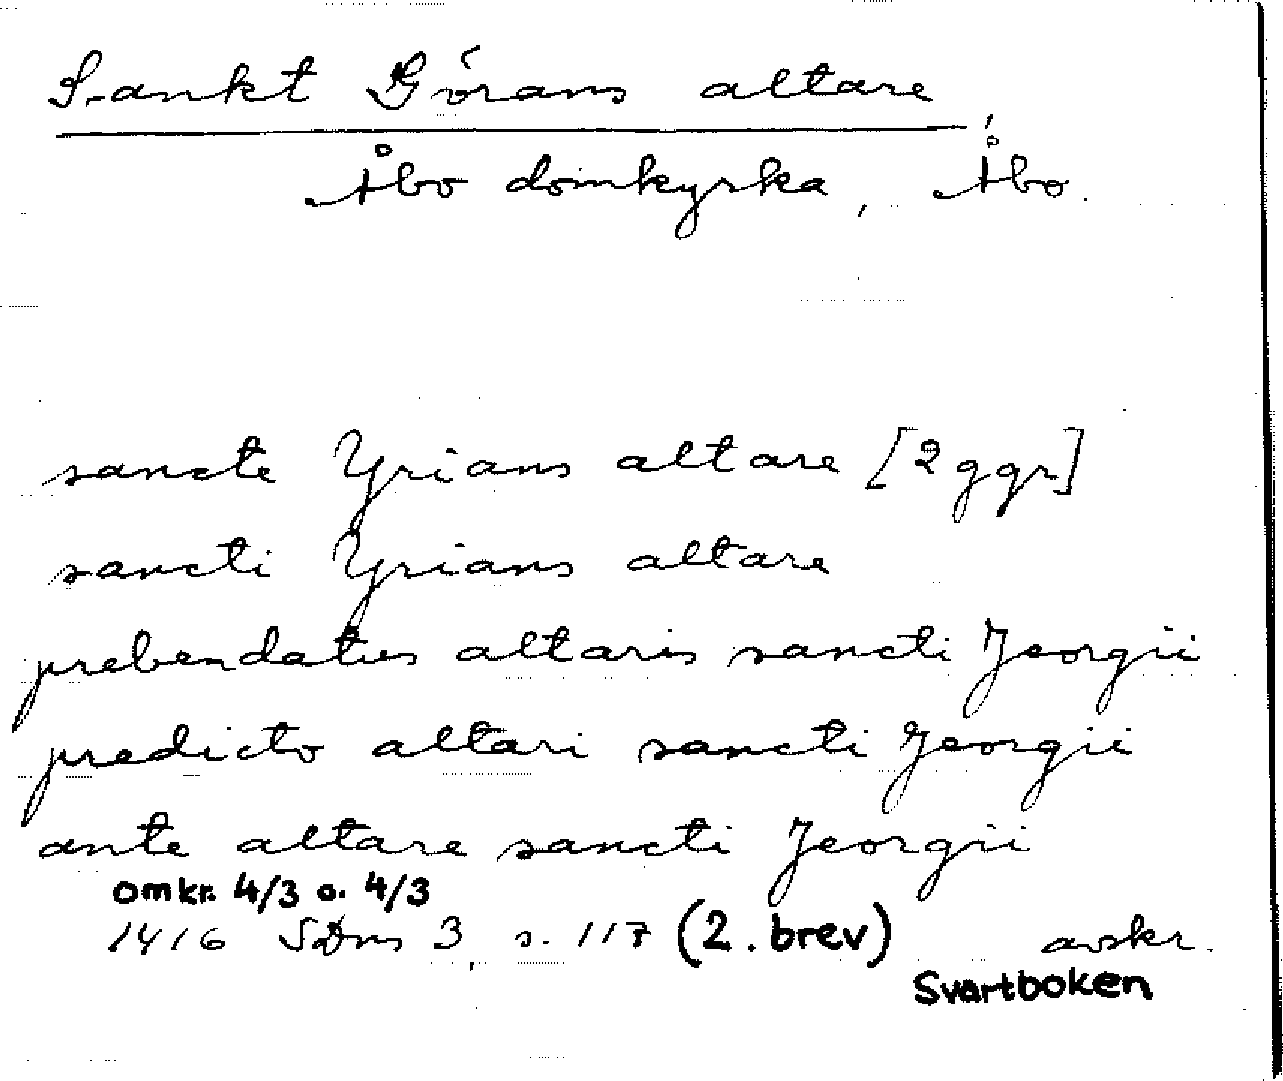 Sankt Görans altare,
Åbo domkyrka, Åbo.
sancte Yrians altare [2 ggr]
sancti Yrians altare
prebendatus altaris sancti Jeorgii
predicto altari sancti Jeorgii
ante altare sancti Jeorgii
omkr. 4/3 o. 4/3
1416 SDns 3, s. 117 (2. brev) avskr.
Svartboken